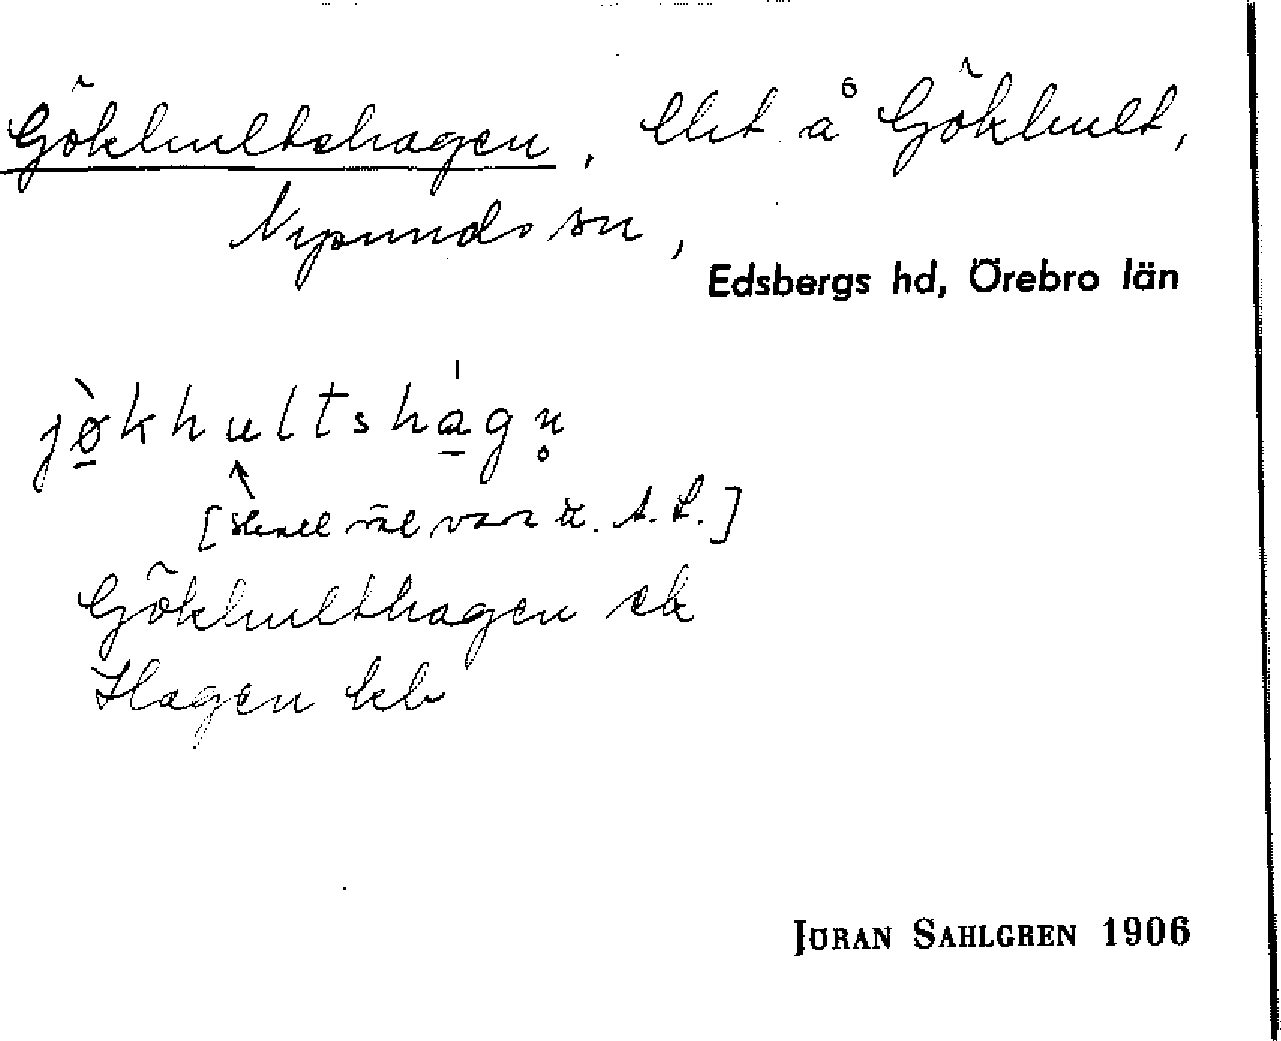 Gökhultshagen, lht å Gökhult,
Nysunds sn,
Edsbergs hd, Örebro län
jø̀khultshágn̥
[skall väl vara A. L.]
Gökhulthagen ek
Hagen kb
JÖRAN SAHLGREN 1906